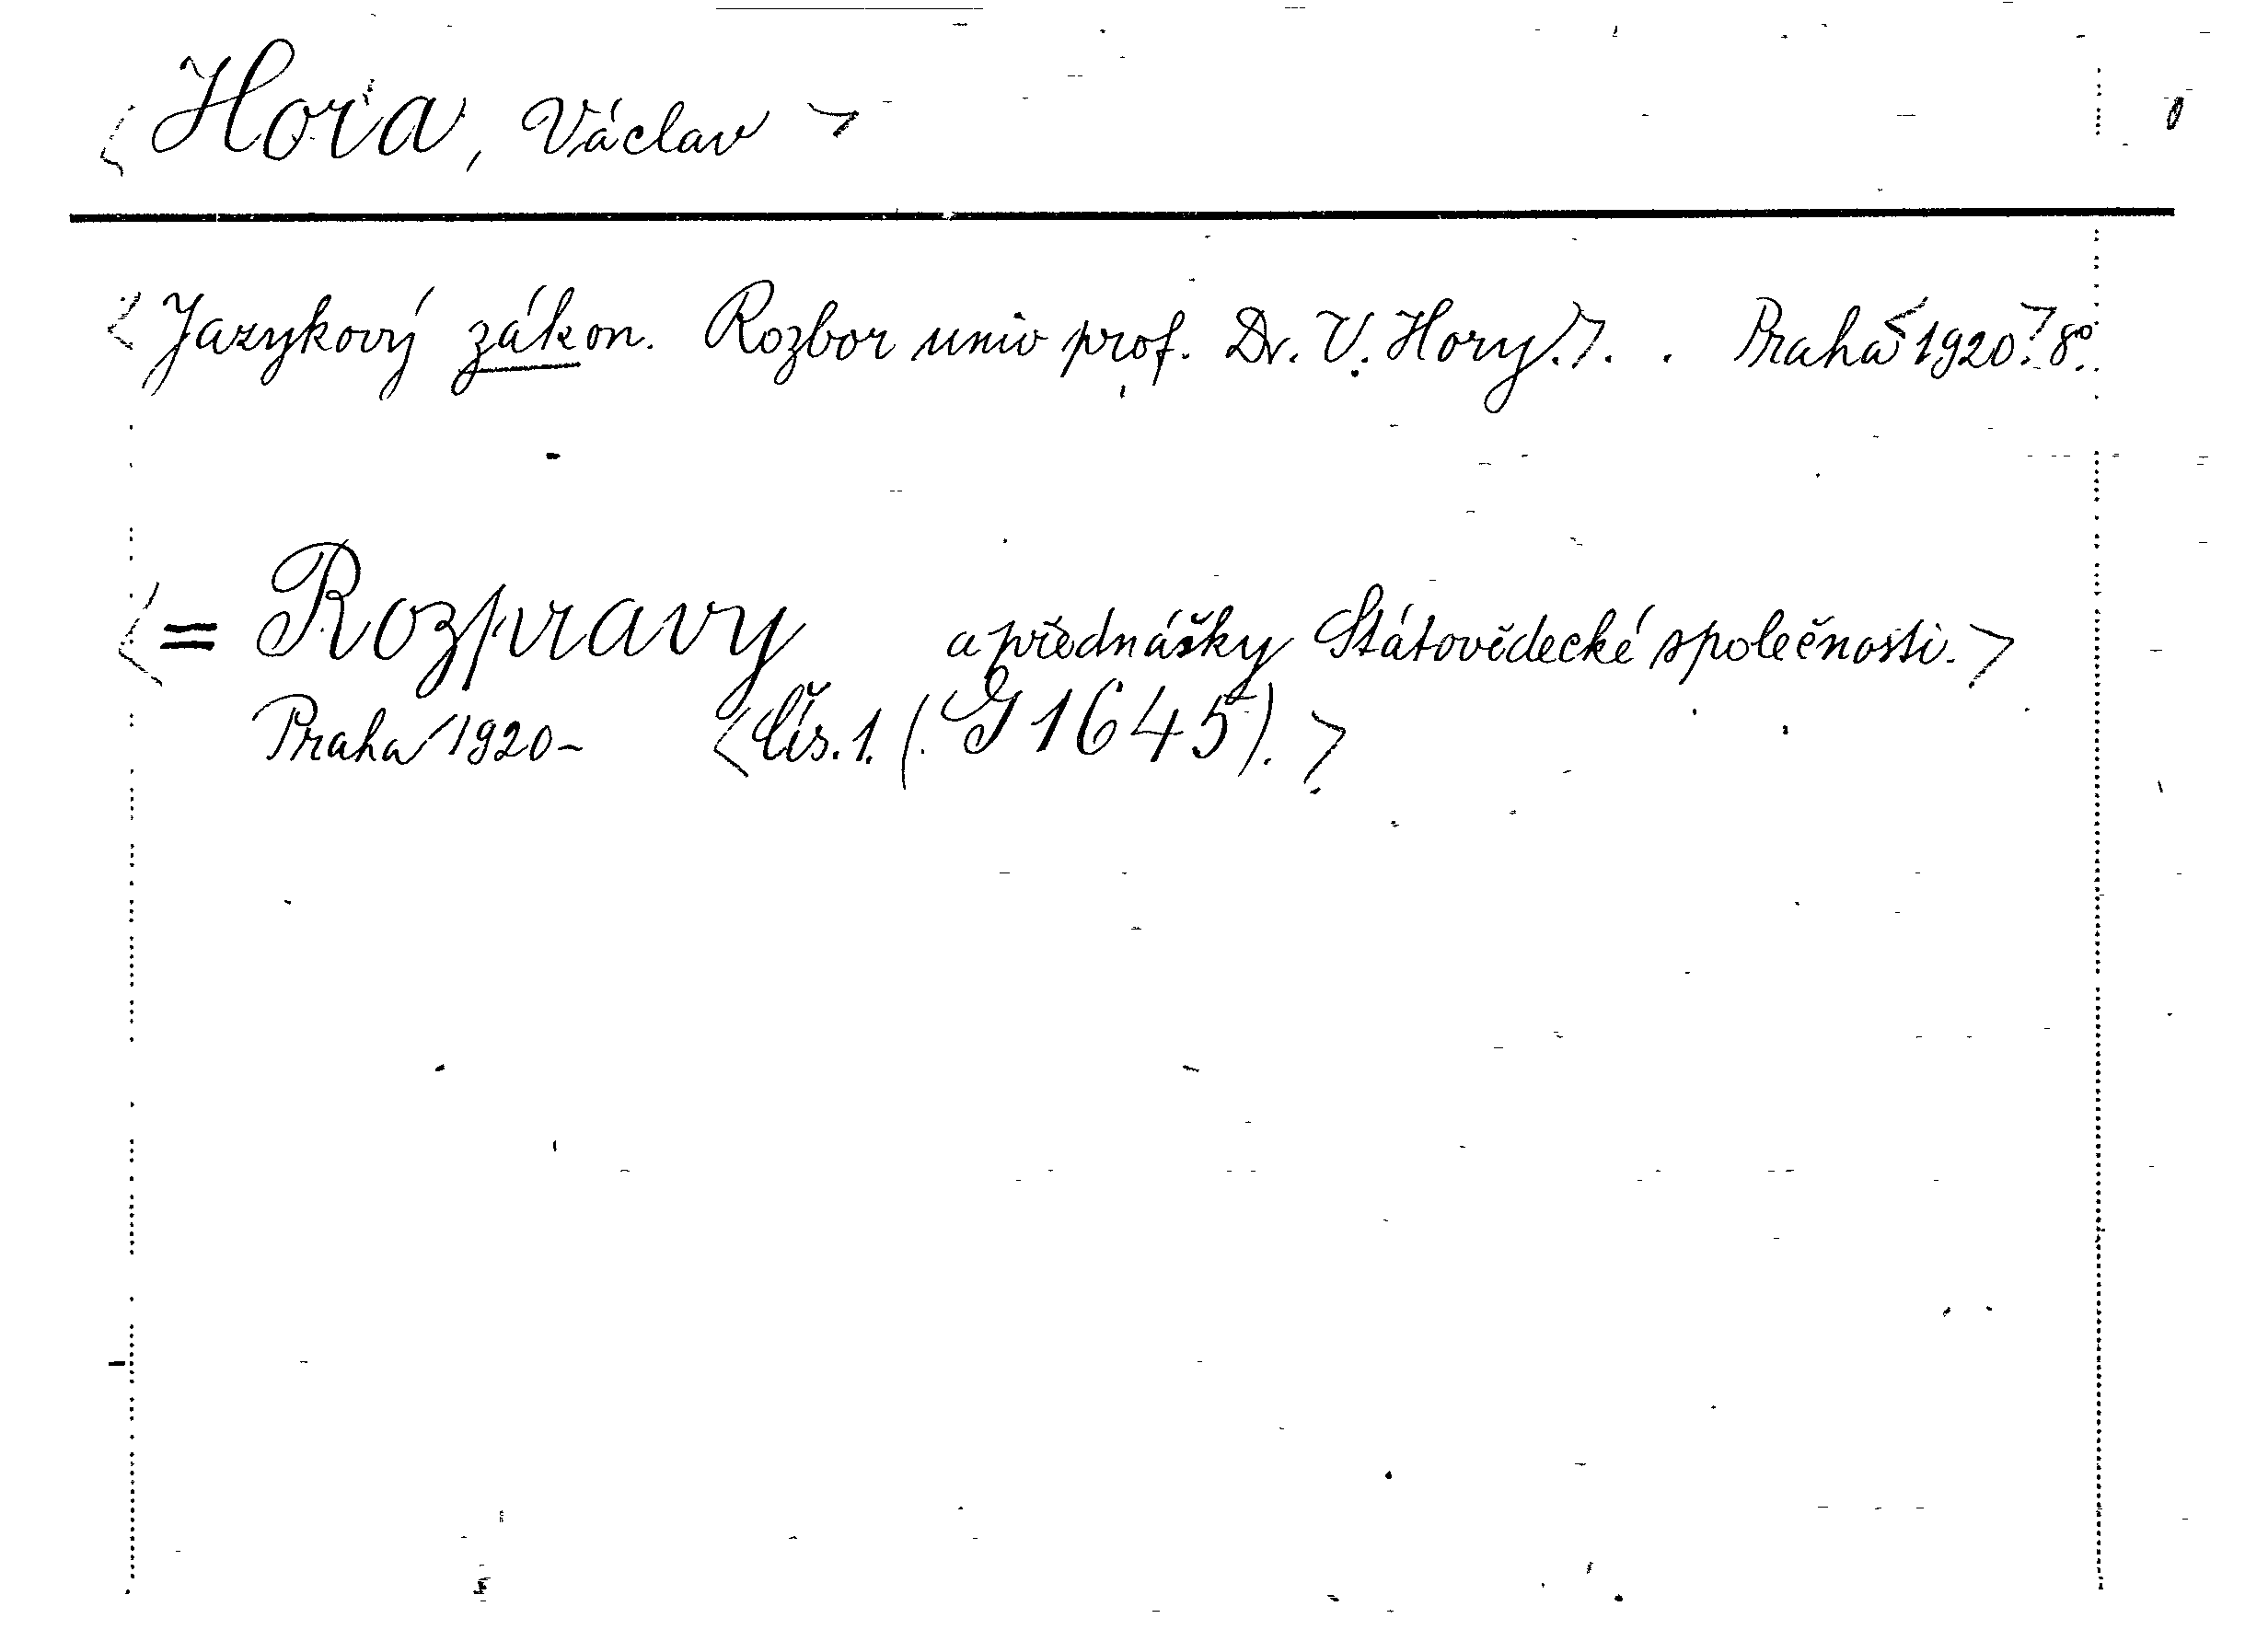 <Hora, Václav>
<Jazykový zákon. Rozbor univ prof. Dr. V. Hory.>. . Praha <1920>. 8°.
<= Rozpravy a přednášky Státovědecké společnosti.>
Praha 1920- <Čís. 1. (G 1645).>